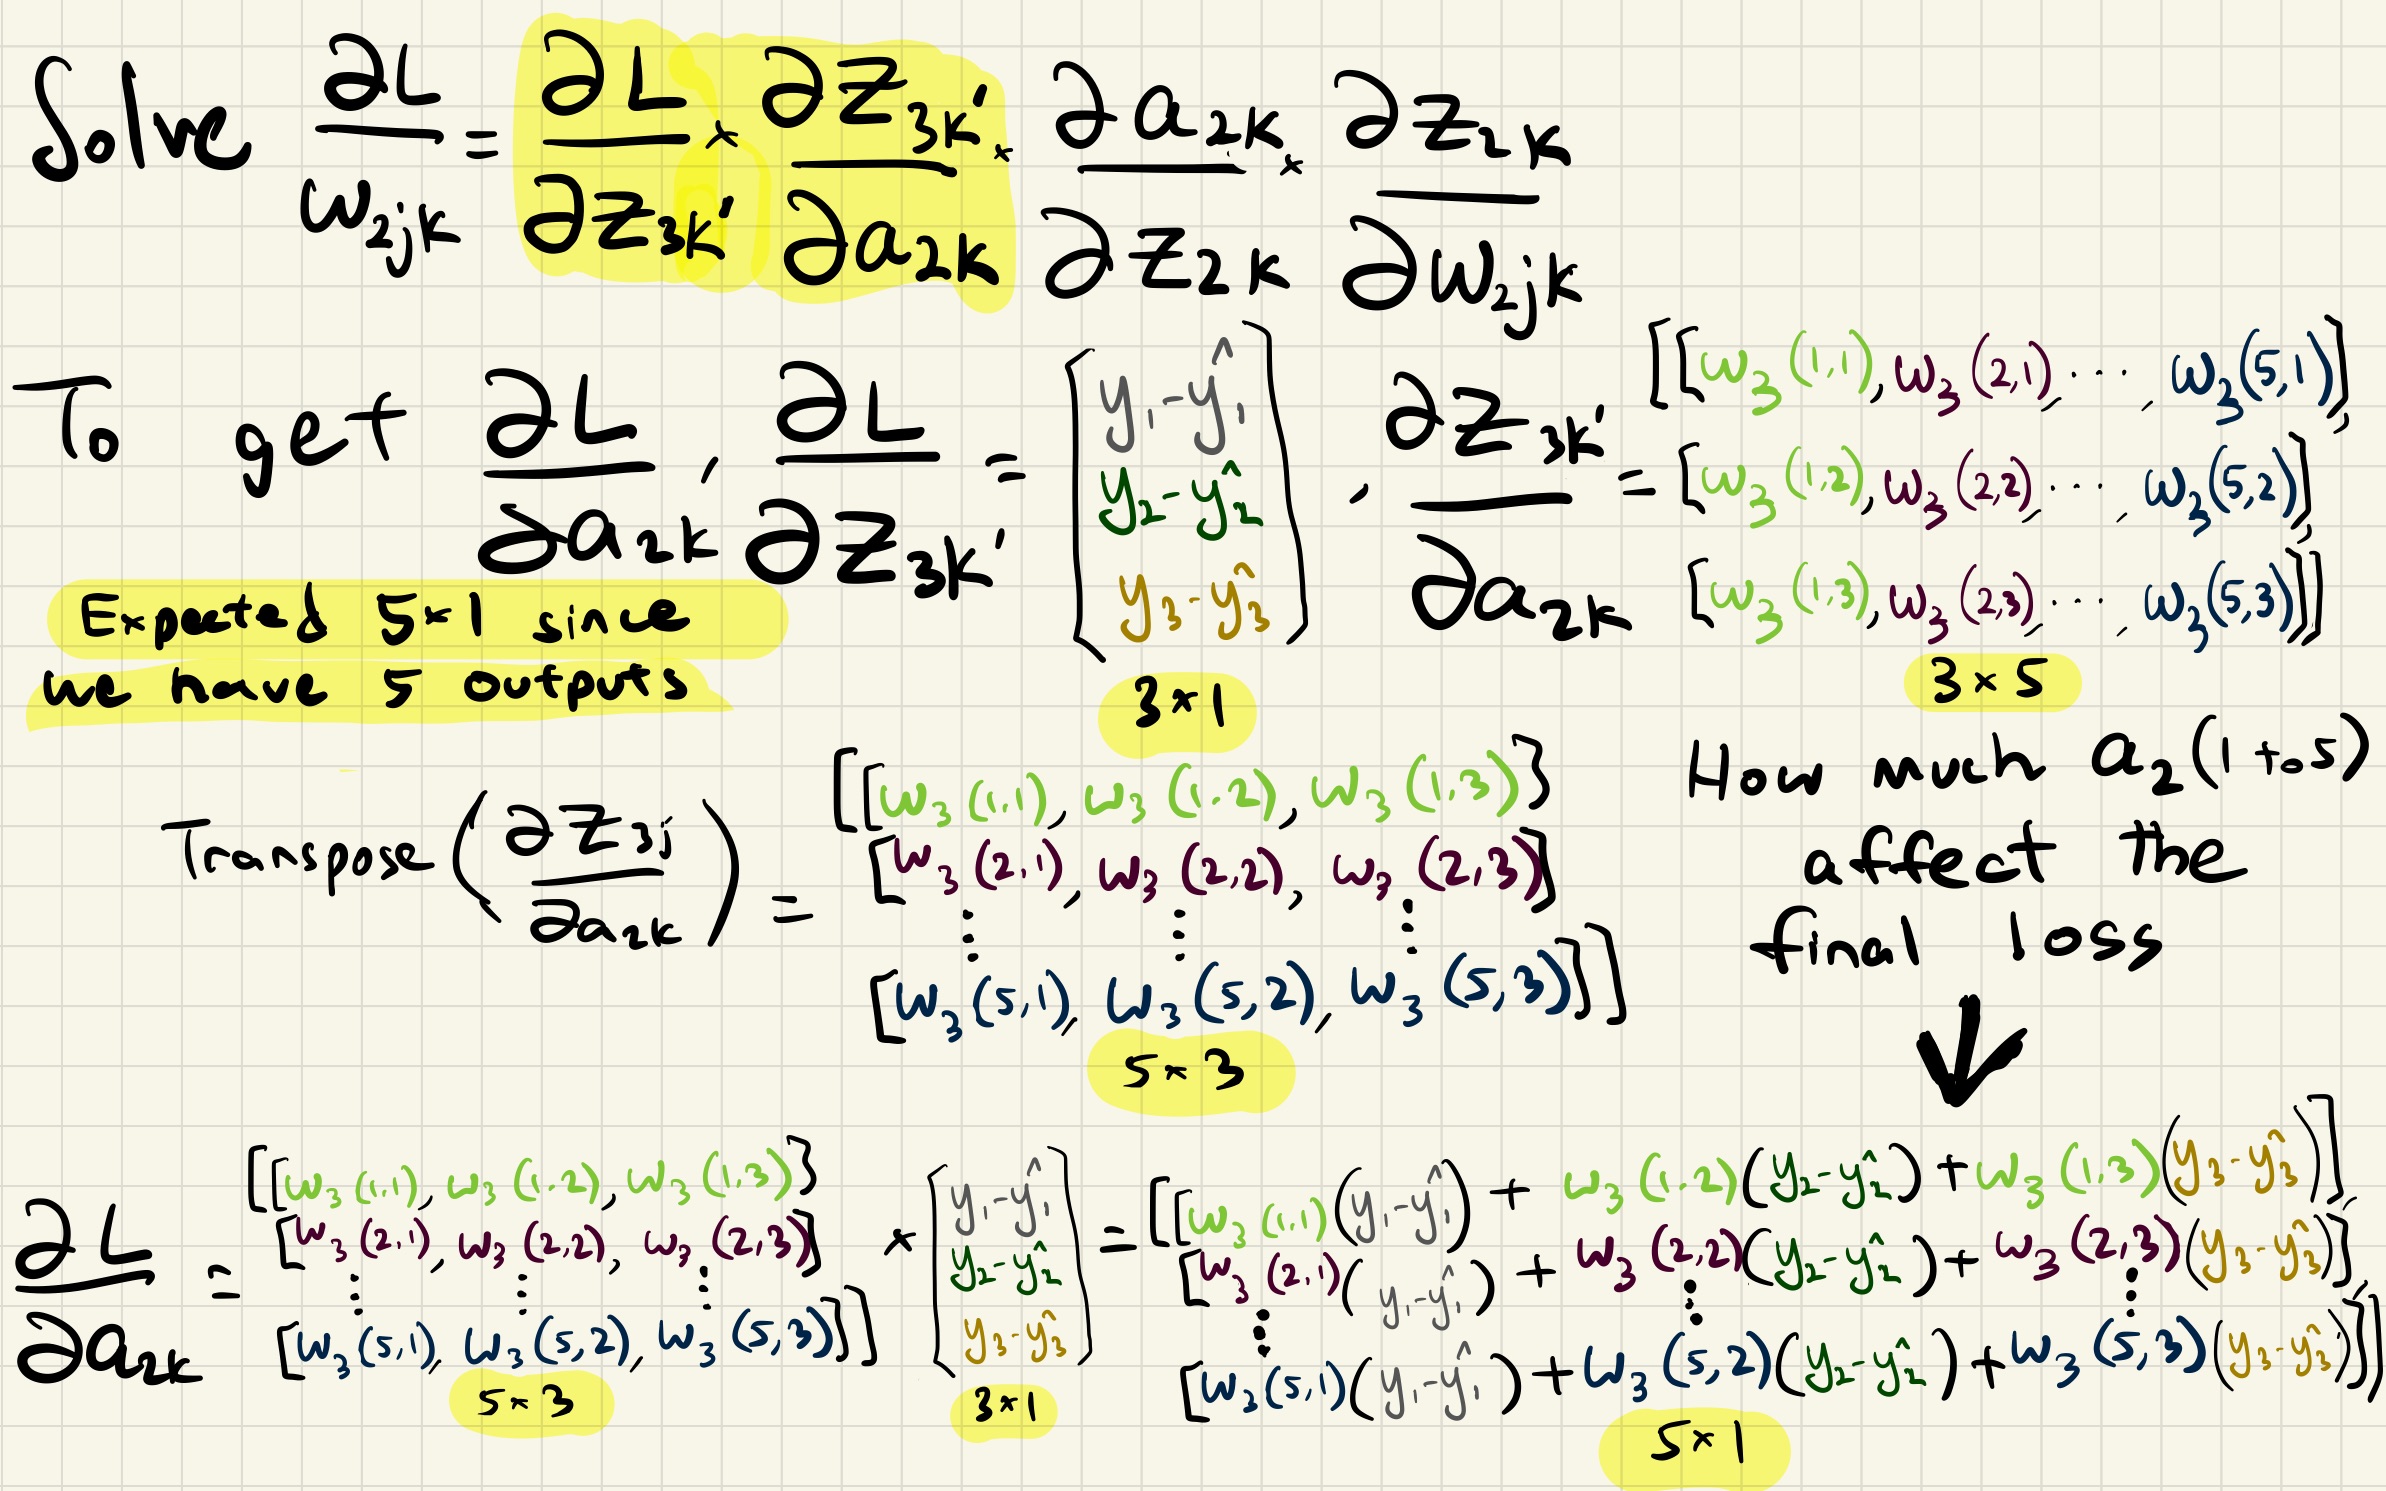 Solve ∂L/w₂jk = ∂L/∂z₃k' × ∂z₃k'/∂a₂k × ∂a₂k/∂z₂k × ∂z₂k/∂w₂jk
To get ∂L/∂a₂k, ∂L/∂z₃k' = [y₁-ŷ₁ y₂-ŷ₂ y₃-ŷ₃], ∂z₃k'/∂a₂k = [[w₃(1,1), w₃(2,1), ..., w₃(5,1)],
[w₃(1,2), w₃(2,2), ..., w₃(5,2)],
[w₃(1,3), w₃(2,3), ..., w₃(5,3)]]
Expected 5×1 since
we have 5 outputs
3×1
3×5
Transpose(∂z₃j/∂a₂k) = [[w₃(1,1), w₃(1,2), w₃(1,3)]
[w₃(2,1), w₃(2,2), w₃(2,3)]
⋮ ⋮ ⋮
[w₃(5,1), w₃(5,2), w₃(5,3)]]
5×3
How much a₂(1 to 5)
affect the
final loss
↓
∂L/∂a₂k = [[w₃(1,1), w₃(1,2), w₃(1,3)] [w₃(2,1), w₃(2,2), w₃(2,3)] ⋮ ⋮ ⋮ [w₃(5,1), w₃(5,2), w₃(5,3)]] × [y₁-ŷ₁ y₂-ŷ₂ y₃-ŷ₃] = [[w₃(1,1)(y₁-ŷ₁) + w₃(1,2)(y₂-ŷ₂) + w₃(1,3)(y₃-ŷ₃)],
[w₃(2,1)(y₁-ŷ₁) + w₃(2,2)(y₂-ŷ₂) + w₃(2,3)(y₃-ŷ₃)],
⋮ ⋮ ⋮
[w₃(5,1)(y₁-ŷ₁) + w₃(5,2)(y₂-ŷ₂) + w₃(5,3)(y₃-ŷ₃)]]
5×3
3×1
5×1